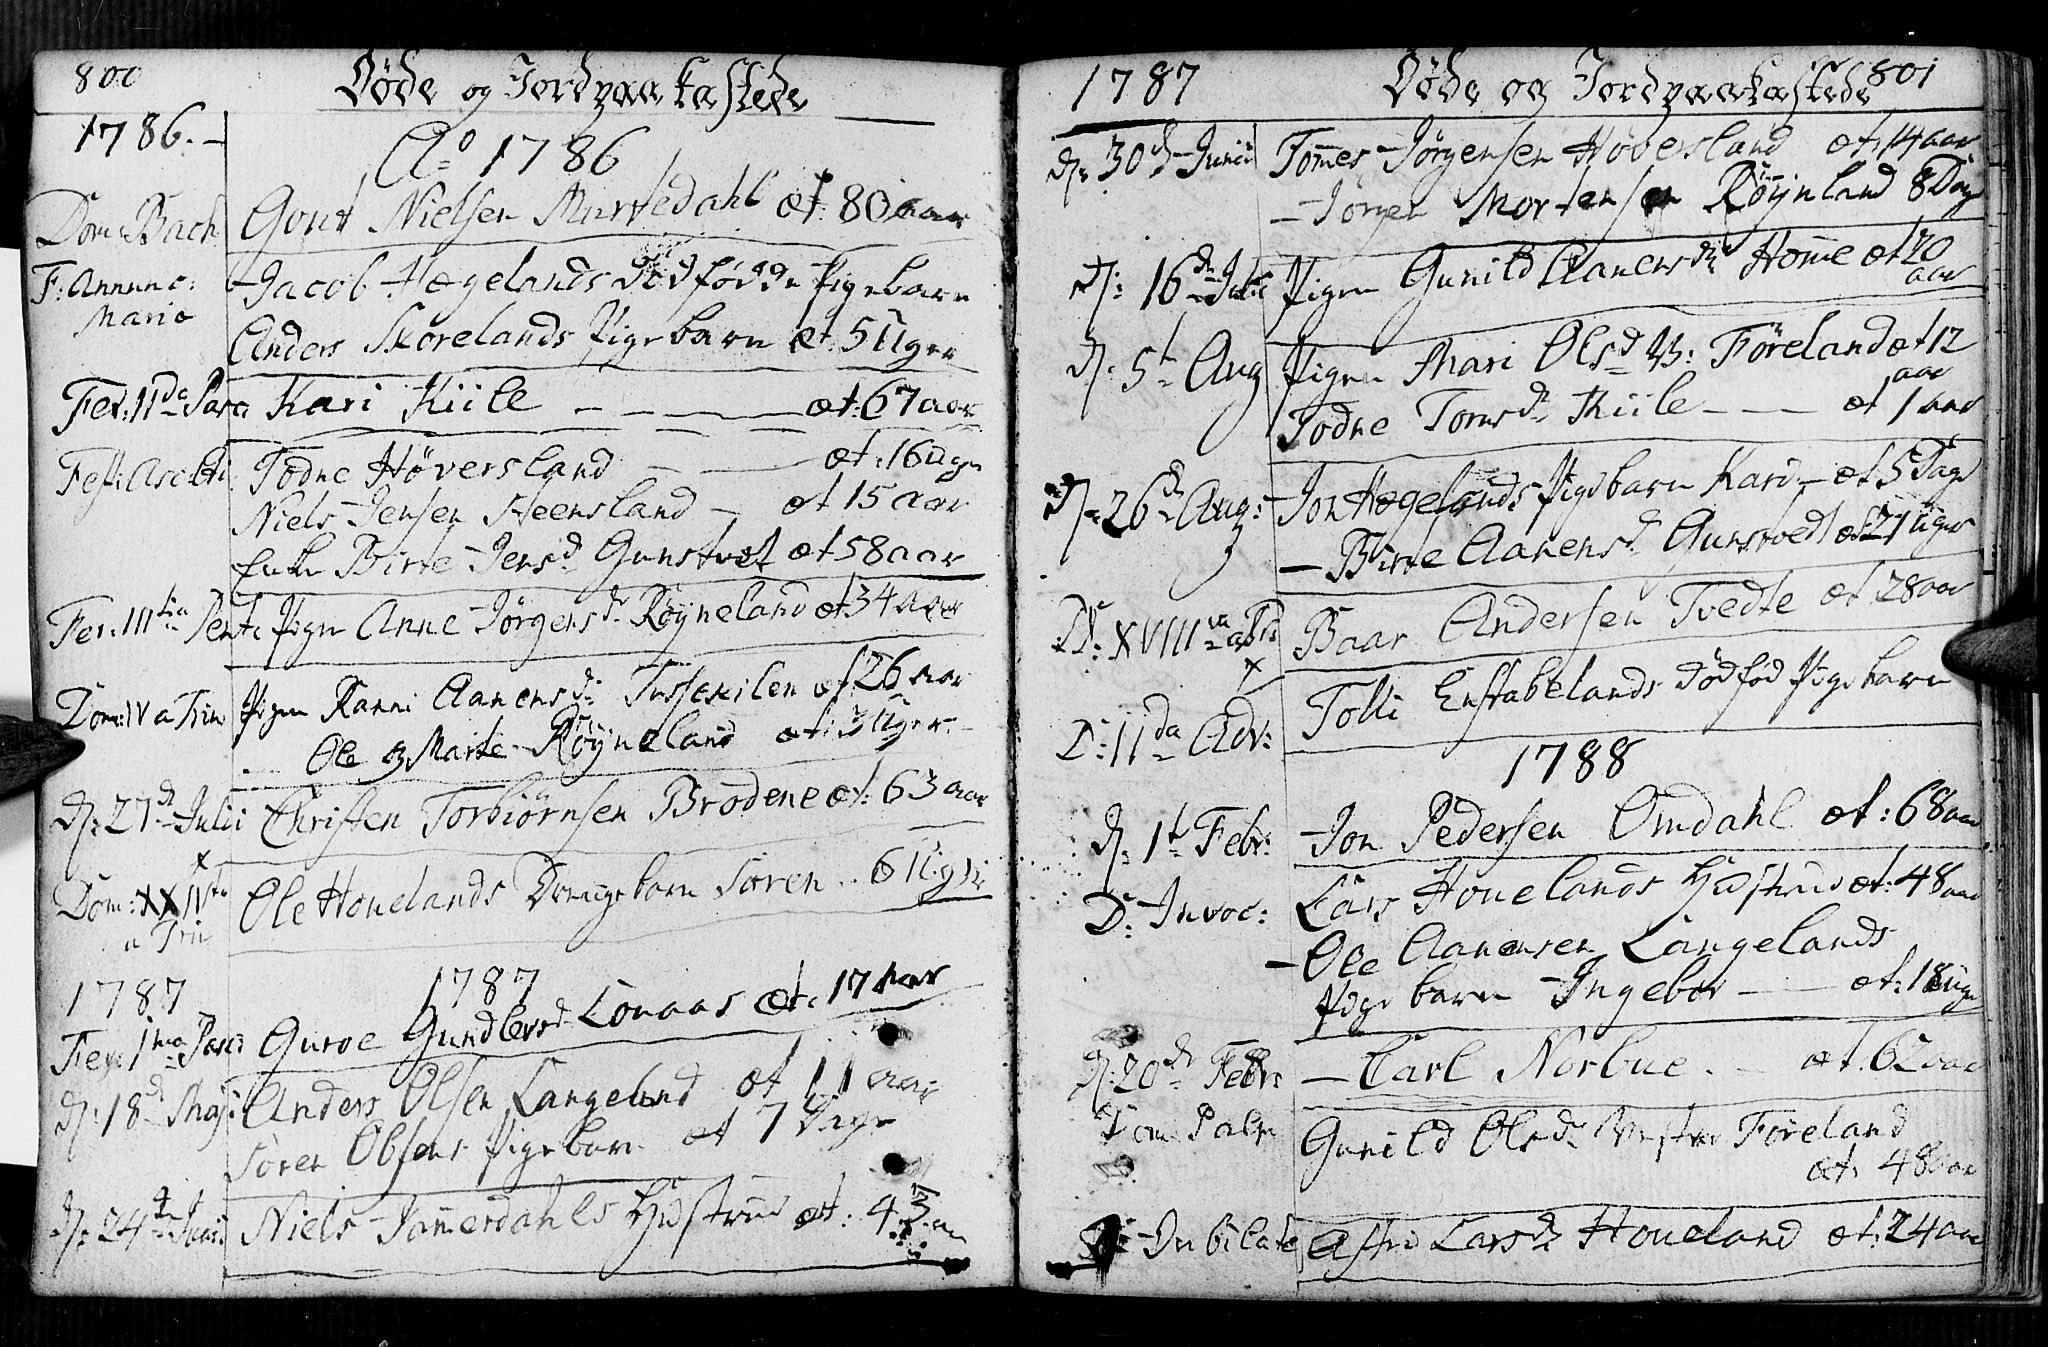 800 Døde og Jordpaakastede
1786.
Ao 1786
Dom: Bach Gout Nielsen Murtedahl æt: 80 aar
F: Annunc: Jacob Hægelands Dødfødde Pigebarn
Mariæ
Anders Skorelands Pigebarn æt. 5 Uger
Fer: IIda Pasc Kari Kiile - - - æt: 67 aar
Fest: Ascens: Todne Høversland - - æt: 16 Uger
Niels Jensen Heensland - æt 15 aar
Enke Birte Jensd Gunstvet æt 58 aar
Fer: IIItia Pent: Pigen Anne Jørgensdr Røyneland æt 34 aar
Dom: IV a Trin Pigen Ranni Aanensdr æt 26 aar
Ole og Marte Røyneland æt: 3 Uger
D: 27de Julii Christen Torbiørnsen Brødene æt: 63 aar
Dom: XXIVta Ole Houelands Drengebarn Søren .. 6 Uger
a Trin
1787 1787
Fer: Ima Pasc: Guroe Gundlevsd Lonaas æt. 17 aar
D: 18de Maji Anders Olsen Langeland æt 11 aar
Søren Olsens Pigebarn æt 7 Dage
D: 24de Junii Niels Jammerdahls Hustrue æt: 43 aar
1787 Døde og Jordpaakastede 801
D: 30de Junii Tomes Jørgensen Høversland æt: 14 aar
- Jørgen Mortensen Røynland 8 Dage
D: 16de Julii Pigen Gunild Aanensdr Home æt 20
aar
D: 5te Aug Pigen Mari Olsd V: Føreland æt 12
aar
Todne Tomsdr Kiile - - - æt 1 aar
D: 26de Aug: Jon Hægelands Pigebarn Kari - æt 5 Dage
- Birte Aanensd Gunstvedt æt 21 Uger
D: XVIIIva a Tr: Baar Andersen Tvedte æt 28 aar
D: IIda Adv: Tolli Enstabelands Dødfød Pigebarn
1788
D: 1te Febr: Jon Pedersen Omdahl æt: 68 aar
D: Invoc: Lars Houelands Hustrue æt: 48 aar
- Ole Aanensen Langelands
Pigebarn Ingebor - - æt: 18 Uger
D: 20de Febr: - Carl Norbue - æt. 62 aar
Dom Palm Gunild Olsdr Vestre Føreland
æt: 48 aar
D: Jubilate Astrid Larsdr Houeland æt: 24 aar